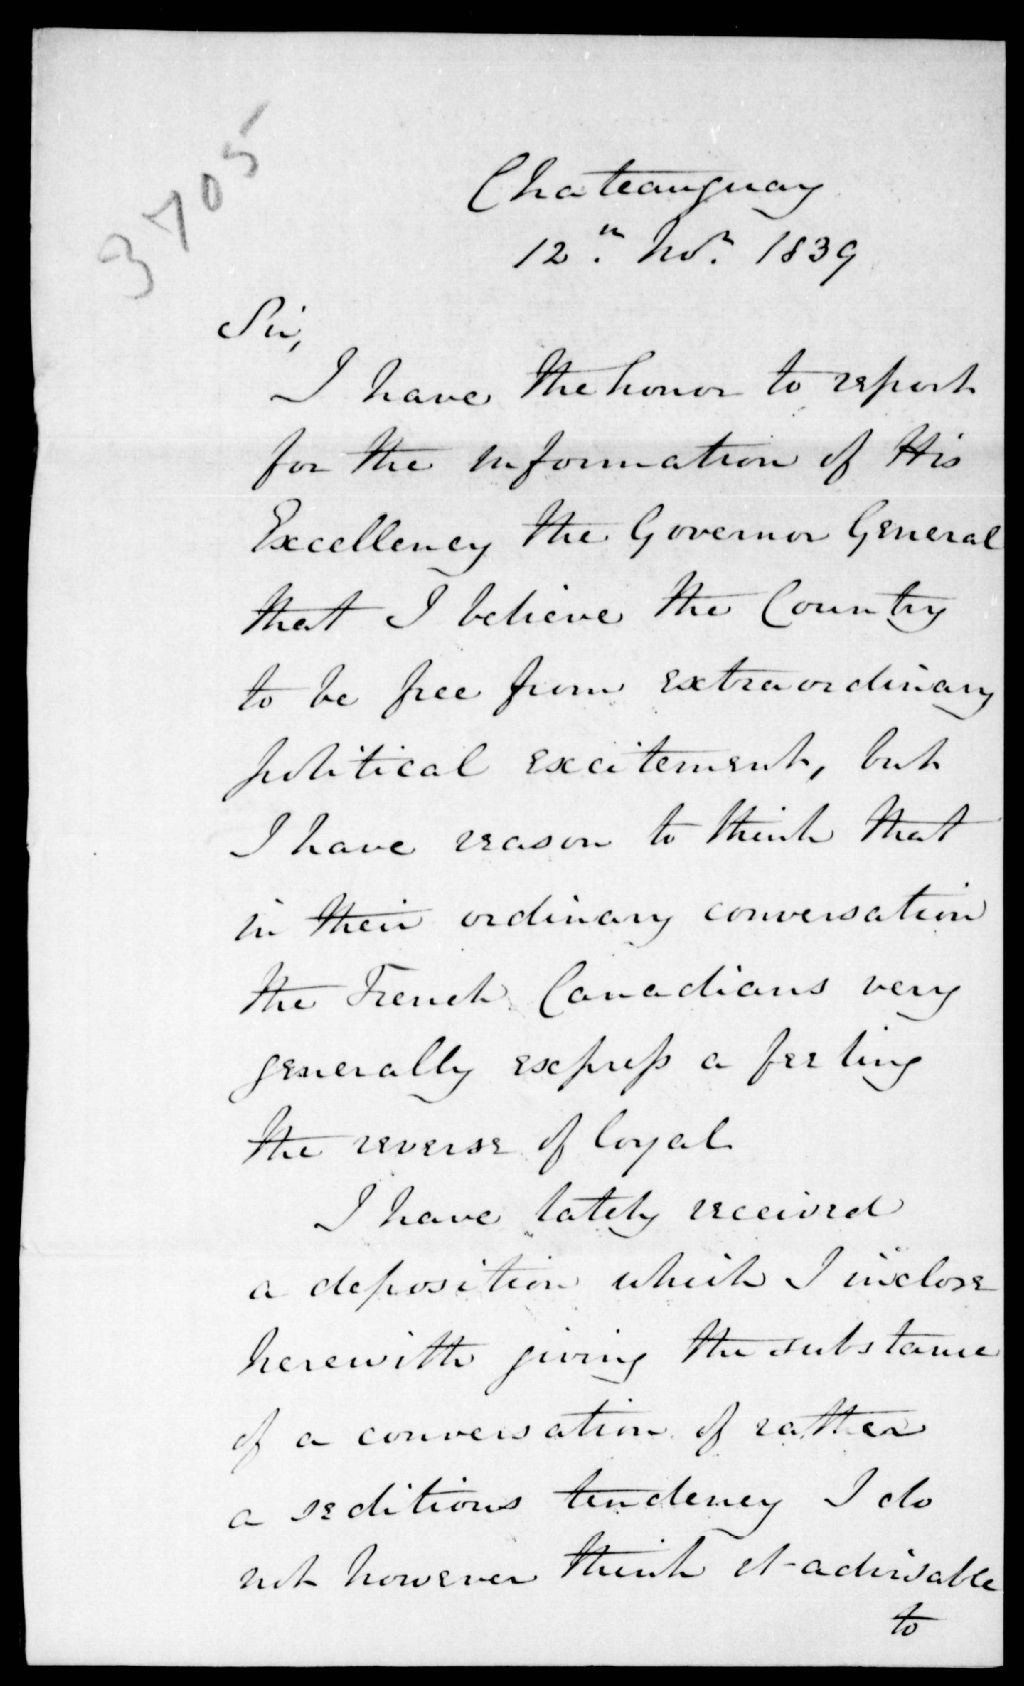 3705
Chateauguay
12th. Novr. 1839
Sir,
I have the honor to report
for the information of His
Excellency the Governor General
that I believe the Country
to be free from extraordinary
political excitement, but
I have reason to think that
in their ordinary conversation
the French Canadians very
generally express a feeling
the reverse of loyal
I have lately received
a deposition which I inclose
herewith giving the substance
of a conversation of rather
a seditious tendency I do
not however think it advisable
to